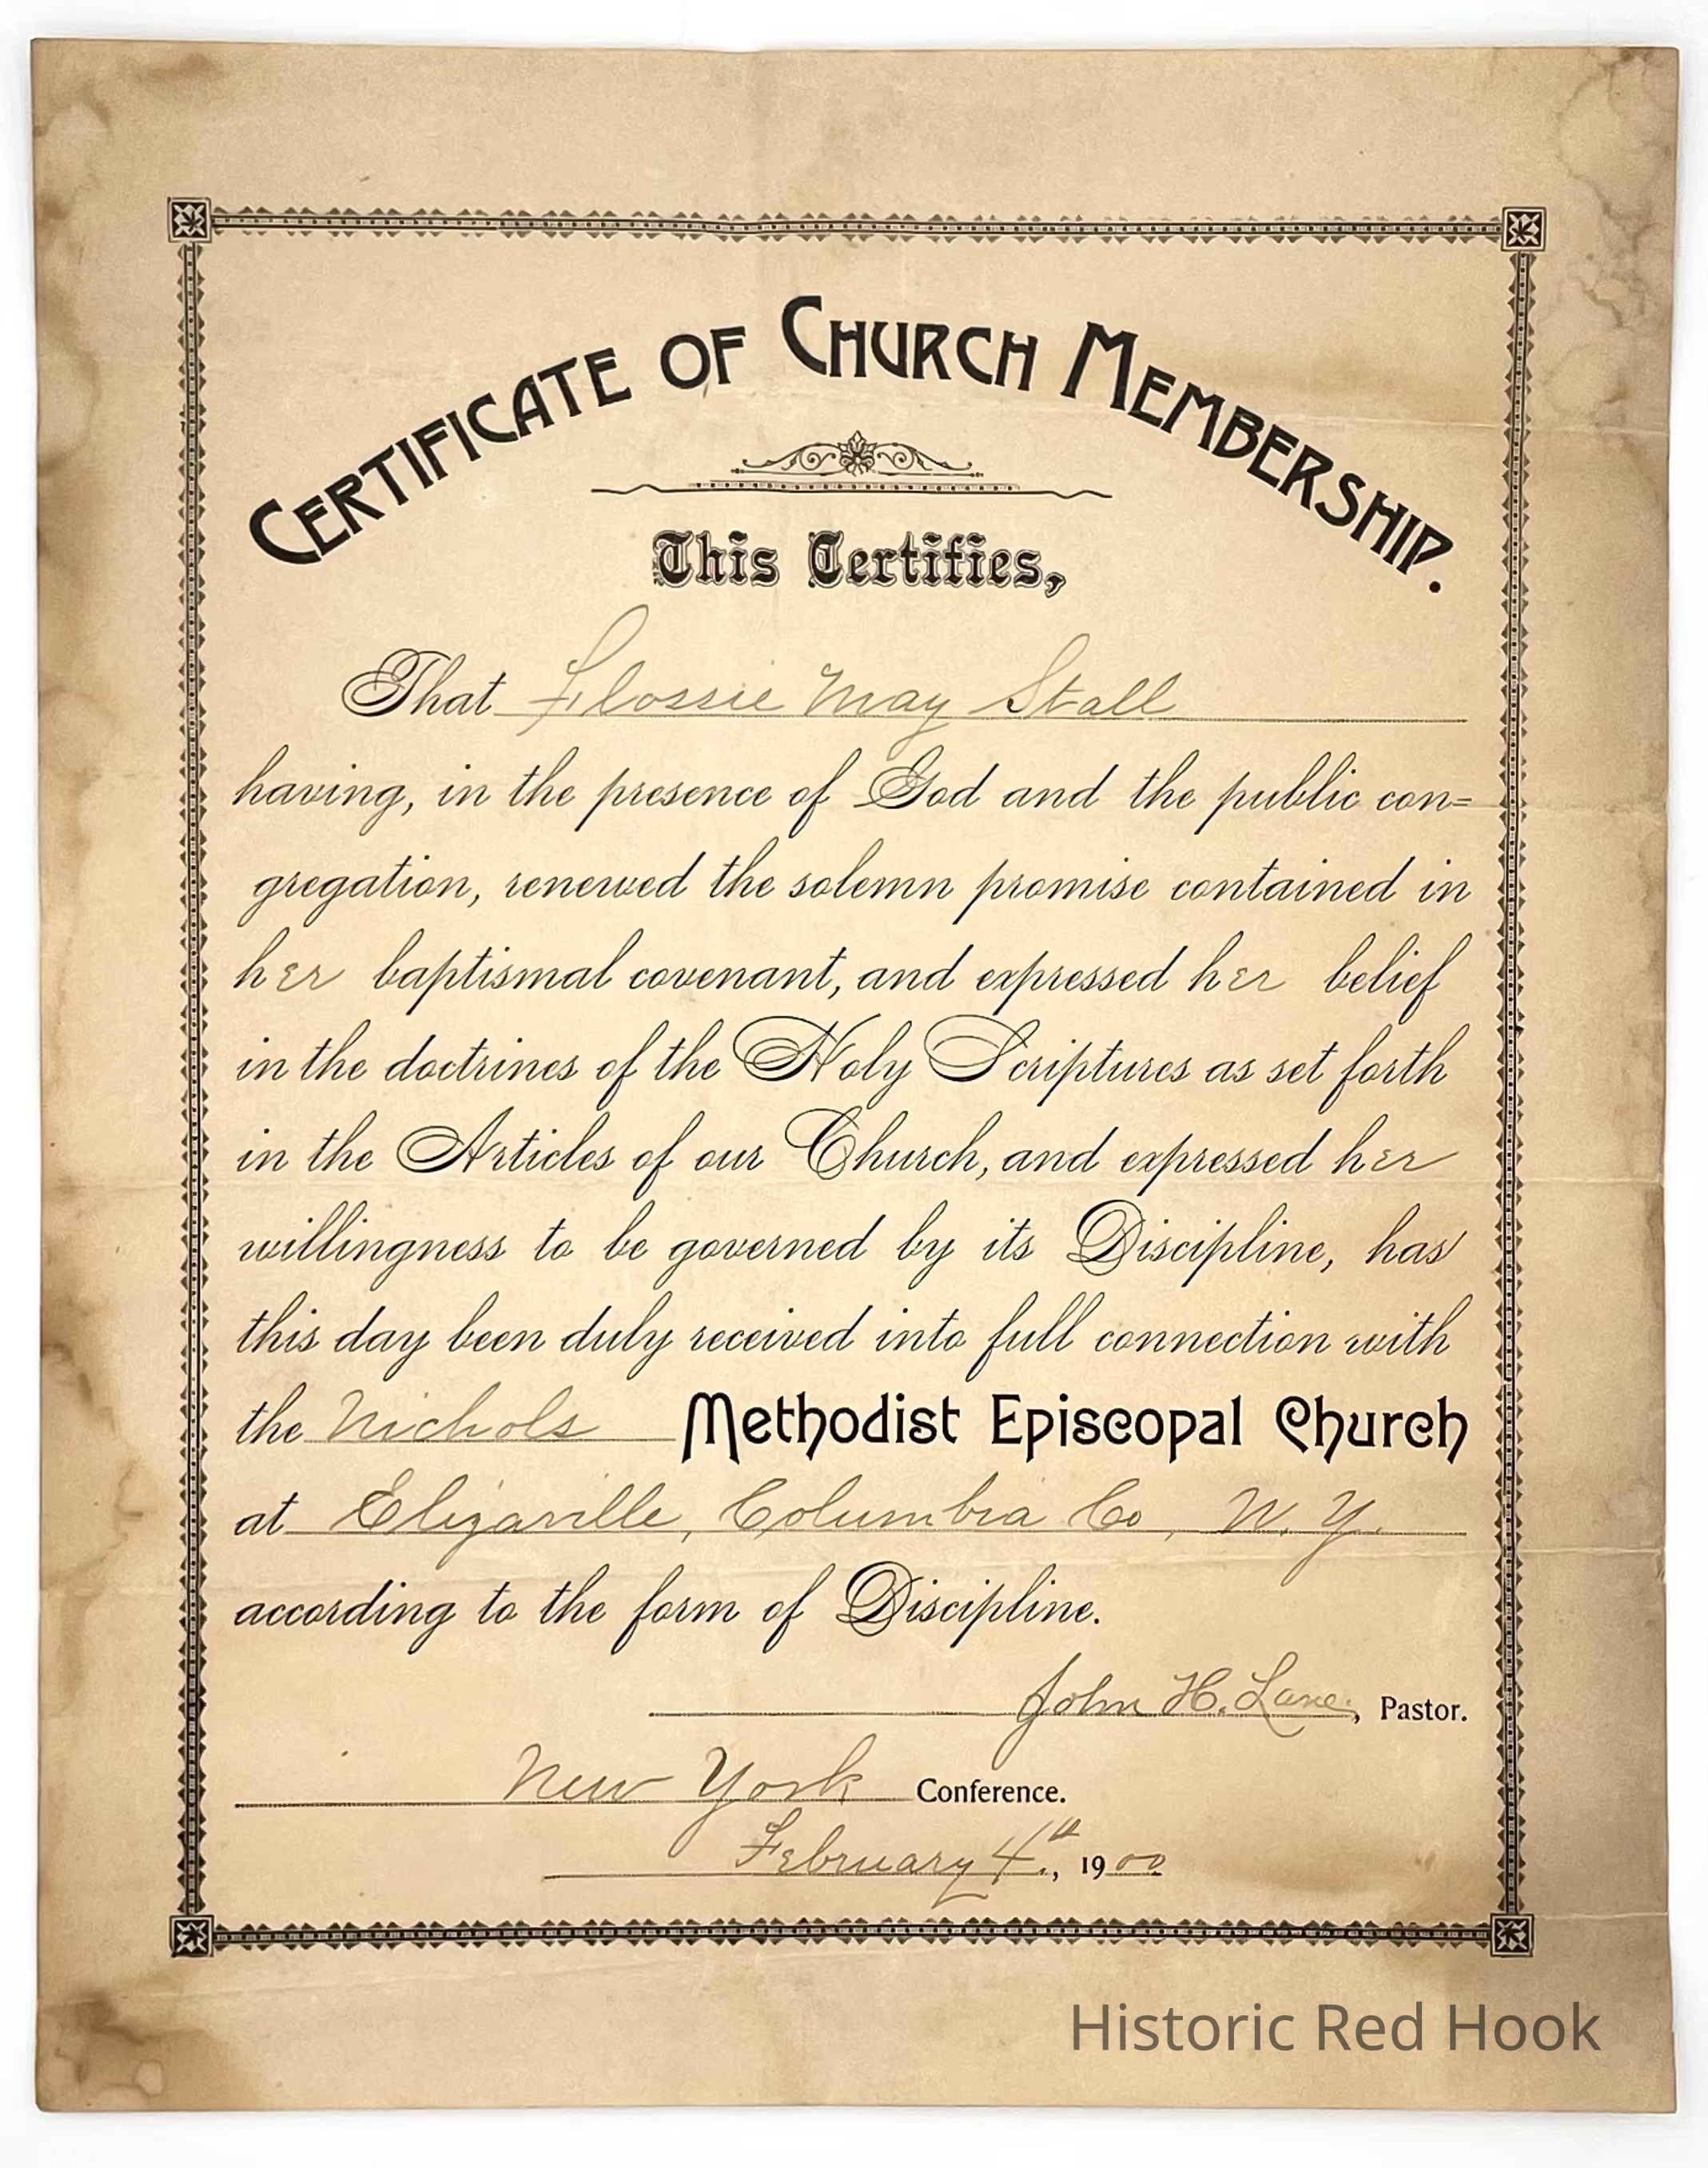 CERTIFICATE OF CHURCH MEMBERSHIP.
This Certifies,
That Flossie May Stall
having, in the presence of God and the public con=
gregation, renewed the solemn promise contained in
her baptismal covenant, and expressed her belief
in the doctrines of the Holy Scriptures as set forth
in the Articles of our Church, and expressed her
willingness to be governed by its Discipline, has
this day been duly received into full connection with
the Nichols Methodist Episcopal Church
at Elizaville, Columbia Co, N. Y.
according to the form of Discipline.
John H. Lane, Pastor.
New York Conference.
February 4th, 1900
Historic Red Hook